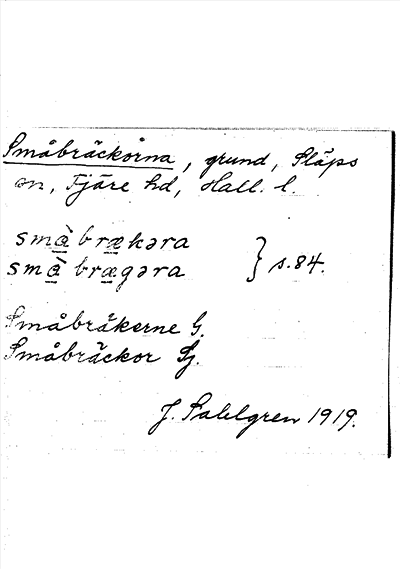 Småbräckorna, grund, Släps
sn, Fjäre hd, Hall. l.
små̀brækəra
små̀brægəra } s. 84.
Småbräkerne G.
Småbräckor Sj.
J. Sahlgren 1919.